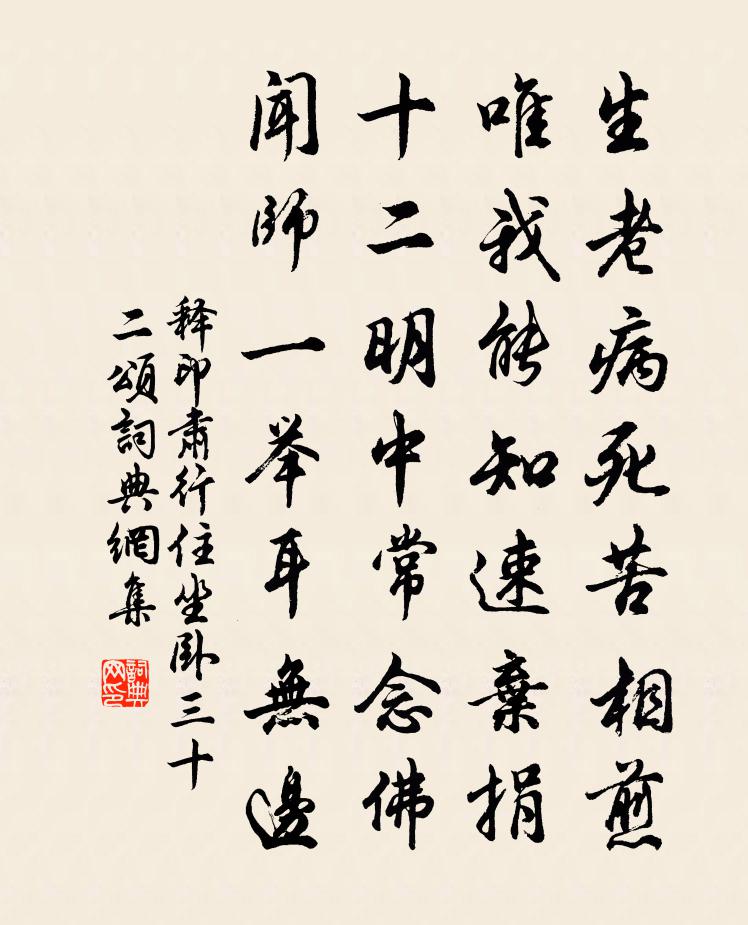 生老病死苦相煎
唯我能知速棄捐
十二明中常念佛
聞師一举耳無邊
释印肅行住坐卧三十
二頌詞典網集
詞典
网印